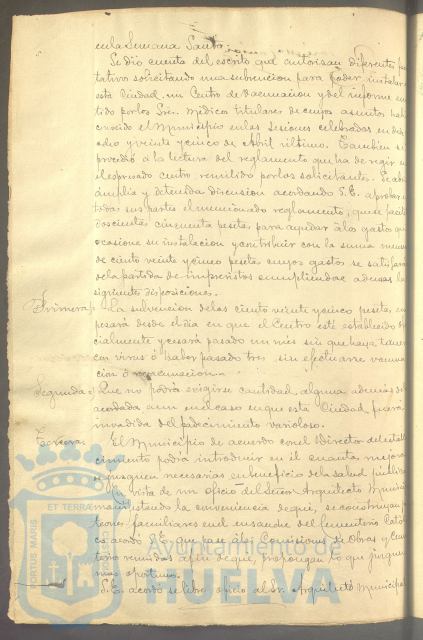 en la Semana Santa.
Se dió cuenta del escrito que autorizan diferentes
tativos solicitando una subvencion para poder instalar
esta Ciudad, un Centro de vacunacion y del informe
tido por los Sres. Médicos titulares de cuyos asuntos
conocido el Municipio en las sesiones celebradas en
ocho y veinte y cinco de Abril último. Tambien se
procedió á la lectura del reglamento que ha de regir
el espresado centro, remitido por los solicitantes. Se
ámplia y detenida discusion acordando S.E. aprobar
todas sus partes el mencionado reglamento, que se
doscientas cincuenta pesetas para ayudar á los gastos que
ocasione su instalacion y contribuir con la suma
de ciento veinte y cinco pesetas cuyos gastos se
de la partida de imprevistos cumpliendose ademas
siguientes disposiciones.
Primera: La subvencion de las ciento veinte y cinco pesetas
pesará desde el dia en que el Centro esté establecido
cialmente y cesará pasado un mes sin que haya
con virus ó haber pasado tres sin efectuarse
cion ó revacunacion.
Segunda: Que no podrá exigirse cantidad alguna ademas
acordada aun en el caso en que esta Ciudad fuera
invadida del padecimiento varioloso.
Tercera: El Municipio de acuerdo con el Director del
cimiento podrá introducir en él cuantas mejoras
necesarias en beneficio de la salud pública
En vista de un oficio del Señor Arquitecto
manifestando la conveniencia de que se construyan
familiares en el ensanche del Cementerio
acordó S.E. que pase á las Comisiones de Obras y
reunidas á fin de que propongan lo que juzguen
mas oportuno.
S.E. acordó se libre oficio al Sr. Arquitecto Municipal
PORTUS MARIS
ET TERRAE
Ayuntamiento de
HUELVA